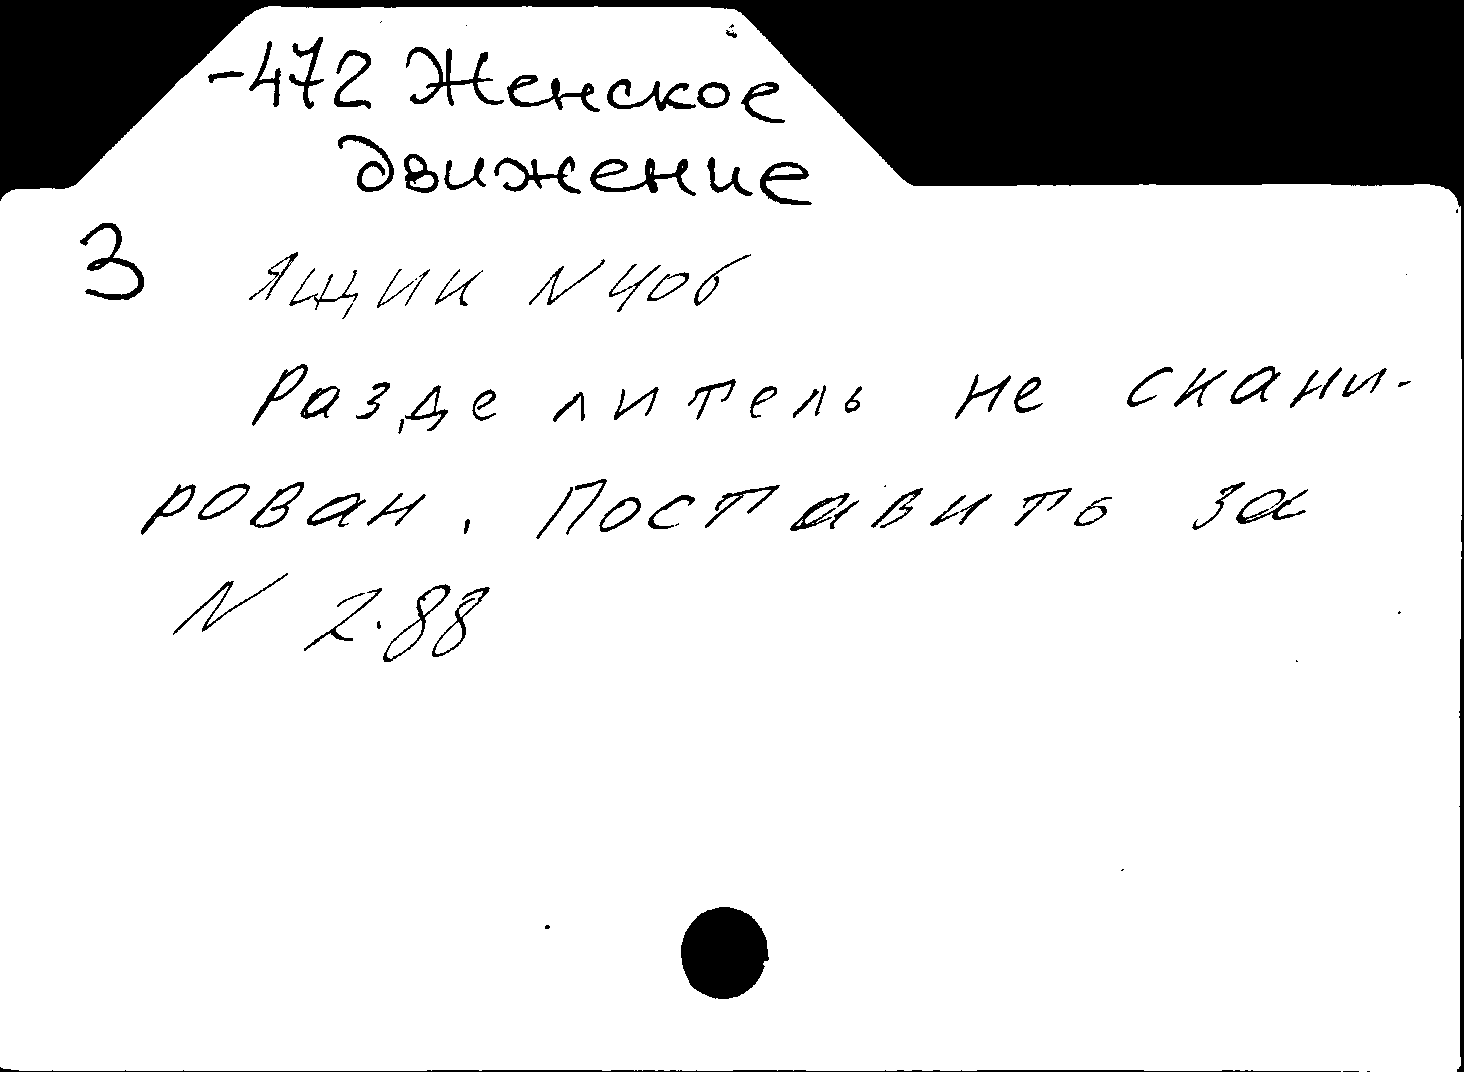 -472 Женское
движение
3 Ящик N 406
Разделитель не скани-
рован. Поставить за
N 2.88